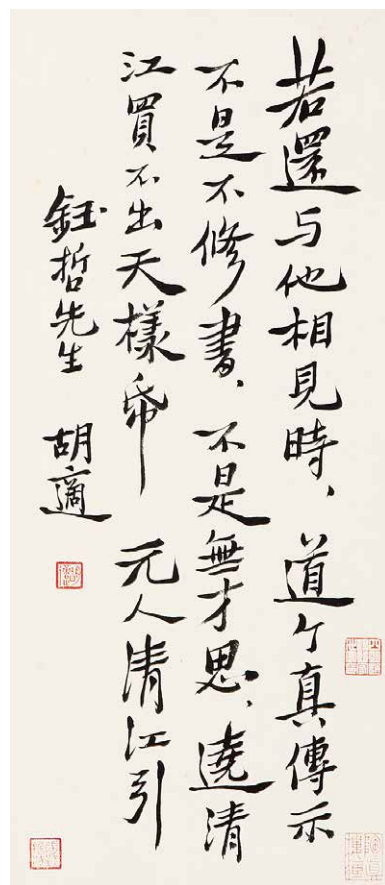 若還与他相見時、道个真傳示
不是不修書、不是無才思、遶清
江買不出天樣帋　元人清江引
鈺哲先生　胡適